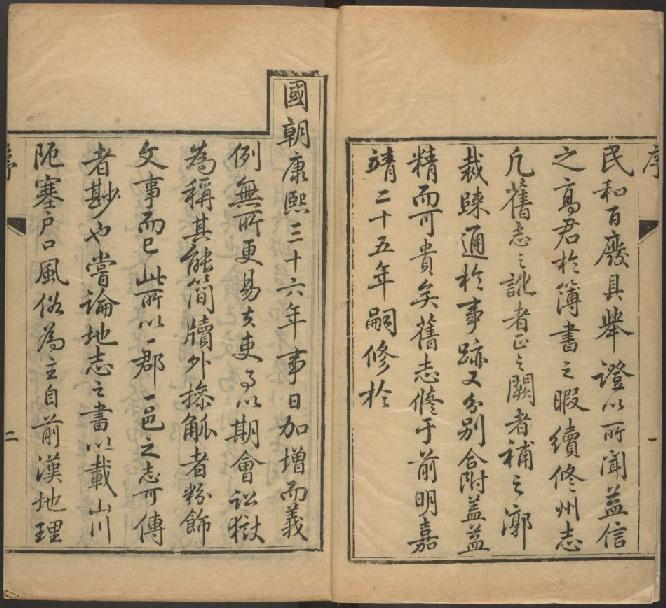 序
民和百廢具舉證以所聞益信
之高君於簿書之暇續修州志
凡舊志之訛者正之闕者補之鄭
裁疎通於事跡又分別合附蓋益
精而可貴矣舊志修于前明嘉
靖二十五年嗣修於
一
國朝康熙三十六年事日加增而義
例無所更易夫吏多以期會訟獄
為稱其能簡牘外操觚者粉飾
文事而已此所以一郡一邑之志可傳
者尠也嘗論地志之書以載山川
阨塞戶口風俗為主自前漢地理
序
二